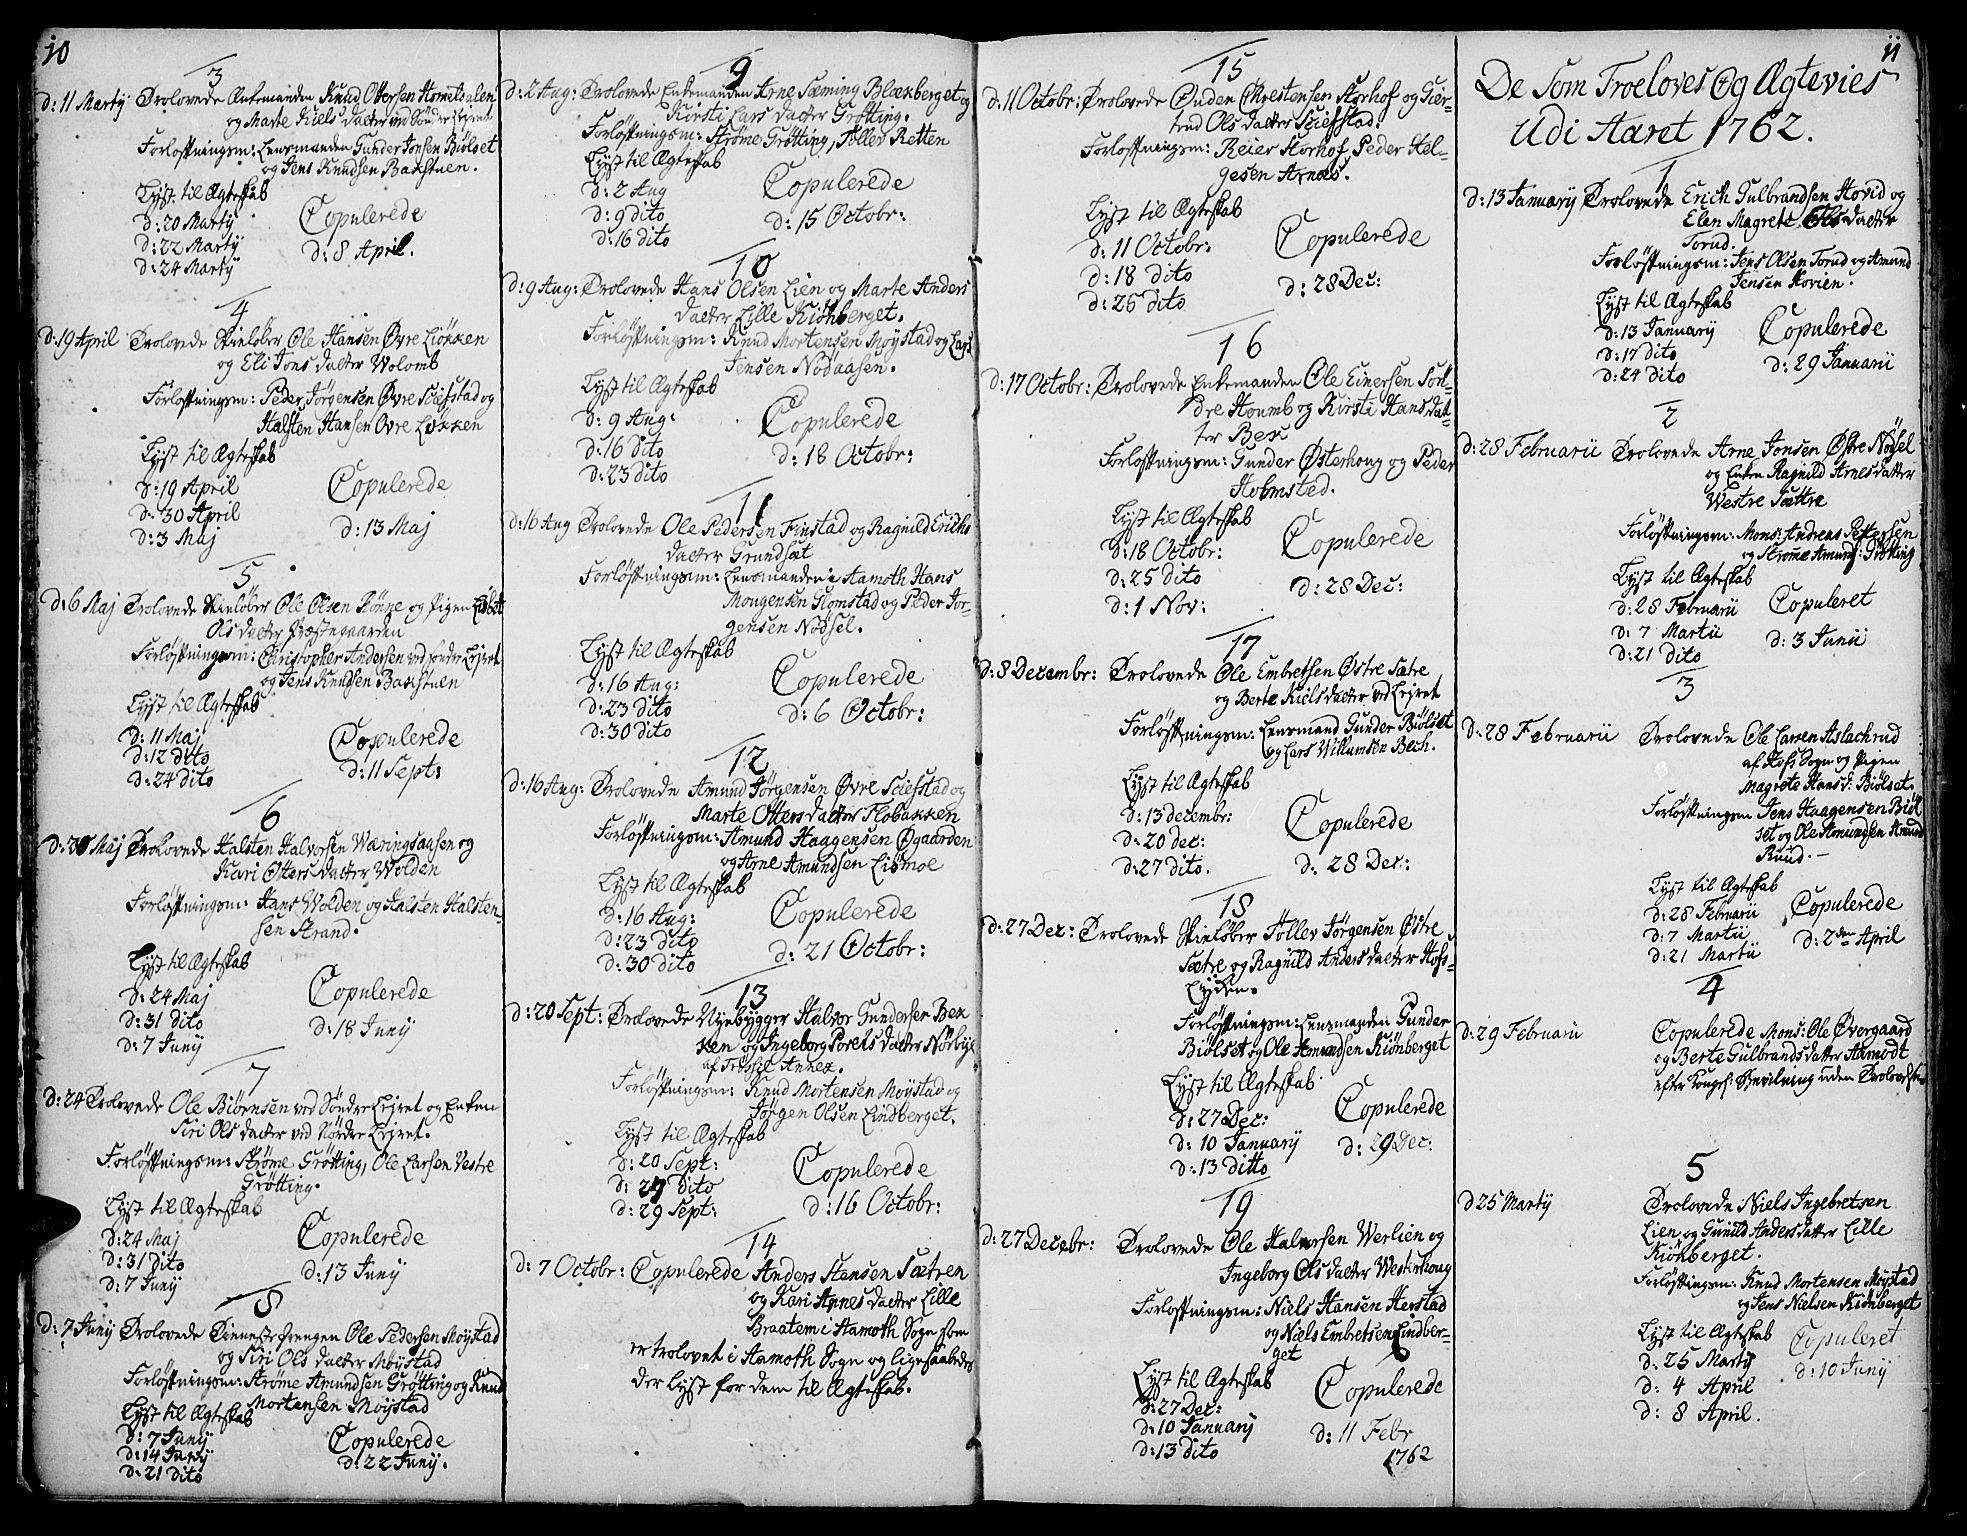 10
3
d: 11 Martij Trolovede Enkemanden Knud Ottersen Homelsalen
og Marte Kiels datter ved Søndre Lejret
Forløftningsm: Lensmanden Gunder Jonsen Biølset
og Jens Knudsen Bakstuen.
Lyst til Ægteskab
d: 20 Martij
d: 22 Martij
d: 24 Martij
Copulerede
d: 8 April.
4
d: 19 April Trolovede Skieløber Ole Hansen Øvre Liøkken
og Eli Jons datter Wolomb
Forløftningsm: Peder Jørgensen Øvre Sciefstad og
Halsten Hansen Øvre Løkken
Lyst til Ægteskab
d: 19 April
d: 30 April
d: 3 Maj
Copulerede
d: 13 Maj
5
d: 6 Maj Trolovede Skieløber Ole Olsen Rønne og Pigen Lisbet
Ols datter Præstegaarden
Forløftningsm: Christopher Andersen ved søndre Lejret
og Jens Knudsen Bakstuen
Lyst til Ægteskab
d: 11 Maj
d: 12 dito
d: 24 dito
Copulerede
d: 11 Sept:
6
Maj Trolovede Halsten Halvorsen Wæringsaasen og
Kari Otters datter Wolden
Forløftningsm: Hans Wolden og Halsten Halsten-
sen Strand.
Lyst til Ægteskab
d: 24 Maj
d: 31 dito
d: 7 Junij
Copulerede
d: 18 Junij
7
d: 24 Trolovede Ole Biørnsen ved Søndre Lejret og Enken
Siri Ols datter ved Nørdre Lejret.
Forløftningsm: Strøme Grøtting, Ole Larsen Vestre
Grøtting.
Lyst til Ægteskab
d: 24 Maj
d: 31 dito
d: 7 Junij
Copulerede
d: 13 Junij
8
d: 7 Junij Trolovede Tienestedrengen Ole Pedersen Møystad
og Siri Ols datter Møystad
Forløftningsm: Strøme Amundsen Grøtting og Knud
Mortensen Møystad
Lyst til Ægteskab
d: 7 Junij
d: 14 Junij
d: 21 dito
Copulerede
d: 22 Junij.
9
d: 2 Aug: Trolovede Enkemanden Arne Sæming Blækberget og
Kirsti Lars datter Grøtting.
Forløftningsm: Strøme Grøtting, Tollev Retten
Lyst til Ægteskab
d: 2 Aug
d: 9 dito
d: 16 dito
Copulerede
d: 15 Octobr:
10
d: 9 Aug: Trolovede Hans Olsen Lien og Marte Anders
datter Lille Kiønberget.
Forløftningsm: Knud Mortensen Møystad og Lars
Jensen Nødaasen.
Lyst til Ægteskab
d: 9 Aug:
d: 16 dito
d: 23 dito
Copulerede
d: 18 Octobr:
11
d: 16 Aug Trolovede Ole Pedersen Finstad og Ragnild Erichs
datter Grundsæt
Forløftningsm: Lensmanden i Aamoth Hans
Mougensen Glomstad og Peder Jør-
gensen Nødsel.
Lyst til Ægteskab
d: 16 Aug:
d: 23 dito
d: 30 dito
Copulerede
d: 6 Octobr:
12
d: 16 Aug: Trolovede Amund Jørgensen Øvre Sciefstad og
Marte Otters datter Flobakken
Forløftningsm: Amund Haagensen Øgaarden
og Arne Amundsen Liømoe
Lyst til Ægteskab
d: 16 Aug:
d: 23 dito
d: 30 dito
Copulerede
d: 21 Octobr:
13
d: 20 Sept: Trolovede Nyebygger Halvor Gundersen Bek
ken og Ingeborg Porels datter Nørbye
af Trysil Annex.
Forløftningsm: Knud Mortensen Møystad og
Jørgen Olsen Lindberget.
Lyst til Ægteskab
d: 20 Sept:
d: 27 dito
d: 29 Sept:
Copulerede
d: 16 Octobr:
14
d: 7 Octobr: Copulerede Anders Stensen Sætren
og Kari Arnes datter Lille
Braatem i Aamoth Sogn som
er trolovet i Aamoth Sogn og ligesaabedes
der lyst for dem til Ægteskab.
15
d: 11 Octobr: Trolovede Ønden Chrestensen Storhof og Gier-
trud Ols datter Sciefstad.
Forløftningsm: Reier Storhof, Peder Hel-
gesen Arnæs.
Lyst til Ægteskab
d: 11 Octobr:
d: 18 dito
d: 25 dito
Copulerede
d: 28 Dec:
16
d: 17 Octobr: Trolovede Enkemanden Ole Einersen Søn-
dre Houmb og Kirsti Hans dat-
ter Bek
Forløftningsm: Gunder Østerhoug og Peder
Holmsted.
Lyst til Ægteskab
d: 18 Octobr:
d: 25 dito
d: 1 Nov:
Copulerede
d: 28 Dec:
17
d: 8 Decembr: Trolovede Ole Embretsen Østre Sætre
og Berte Kiels datter ved Lejret
Forløftningsm: Lensmand Gunder Biølset
og Lars Willumsen Bech.
Lyst til Ægteskab
d: 13 decembr:
d: 20 dec:
d: 27 dito.
Copulerede
d: 28 Dec:
18
d: 27 Dec: Trolovede Skieløber Tollev Jørgensen Østre
Sætre og Ragnild Anders datter Hofs-
Lykken.
Forløftningsm: Lensmanden Gunder
Biølset og Ole Amundsen Kiønberget
Lyst til Ægteskab
d: 27 Dec:
d: 10 Januarij
d: 13 ditto
Copulerede
d: 29 Dec:
19
d: 27 Decebr: Trolovede Ole Halvorsen Werlien og
Ingeborg Ols datter Westerhoug
Forløftningsm: Niels Hansen Herstad
og Niels Embretsen Lindber-
get
Lyst til Ægteskab
d: 27 Dec:
d: 10 Januarij
d: 13 dito
Copulerede
d: 11 Febr
1762
11
De Som Troeloves Og Ægtevies
Udi Aaret 1762.
1
d: 13 Januarij Trolovede Erich Gulbrandsen Hovid og
Elen Magrete Ols datter
Torud.
Forløftningsm: Jens Olsen Torud og Amund
Jensen Hovien.
Lyst til Ægteskab
d: 13 Januarij
d: 17 dito
d: 24 dito
Copulerede
d: 29 Januarii
2
d: 28 Februarii Trolovede Arne Jonsen Østre Nødsel
og Enken Ragnild Arnes datter
Westre Sættre
Forløftningsm: Mons: Andreas Pettersen
og Strøme Amunds: Grøtting
Lyst til Ægteskab
d: 28 Februarii
d: 7 Martii
d: 21 dito
Copuleret
d: 3 Junii
3
d: 28 Februarii Trolovede Ole Larsen Aslachrud
af Hofs Sogn og Pigen
Magrete Hans d: Biølset.
Forløftningsm Jens Haagensen Biøl
set og Ole Amundsen Amund
Ruud.
Lyst til Ægteskab
d: 28 Februarii
d: 7 Martii
d: 21 Martii
Copulerede
d: 2den April
4
d: 29 Februarii Copulerede Mons: Ole Øvergaard
og Berte Gulbrands datter Aamodt
efter Kongel: Bevilning uden Trolovelse
5
d 25 Martij Trolovede Niels Ingebretsen
Lien og Gunild Anders datter Lille
Kiønberget.
Forløftningsm: Knud Mortensen Møystad
og Jens Nielsen Kiønberget
Lyst til Ægteskab
d: 25 Martij
d: 4 April
d: 8 April.
Copuleret
d: 10 Junij